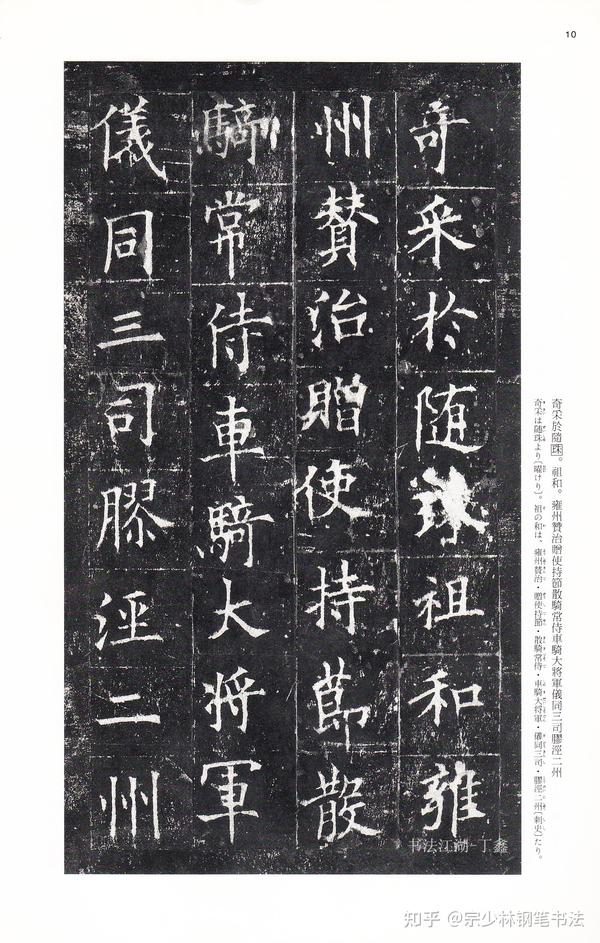 10
奇采於随珠祖和雍
州賛治贈使持節散
騎常侍車騎大将軍
儀同三司膠涇二州
奇采於隨珠。祖和。雍州贊治贈使持節散騎常侍車騎大將軍儀同三司膠涇二州
奇采は随珠より〔曜けり〕。祖の和は、雍州賛治・贈使持節・散騎常侍・車騎大将軍・儀同三司・膠涇二州〔刺史〕たり。
书法江湖-丁鑫
知乎 @宗少林钢笔书法